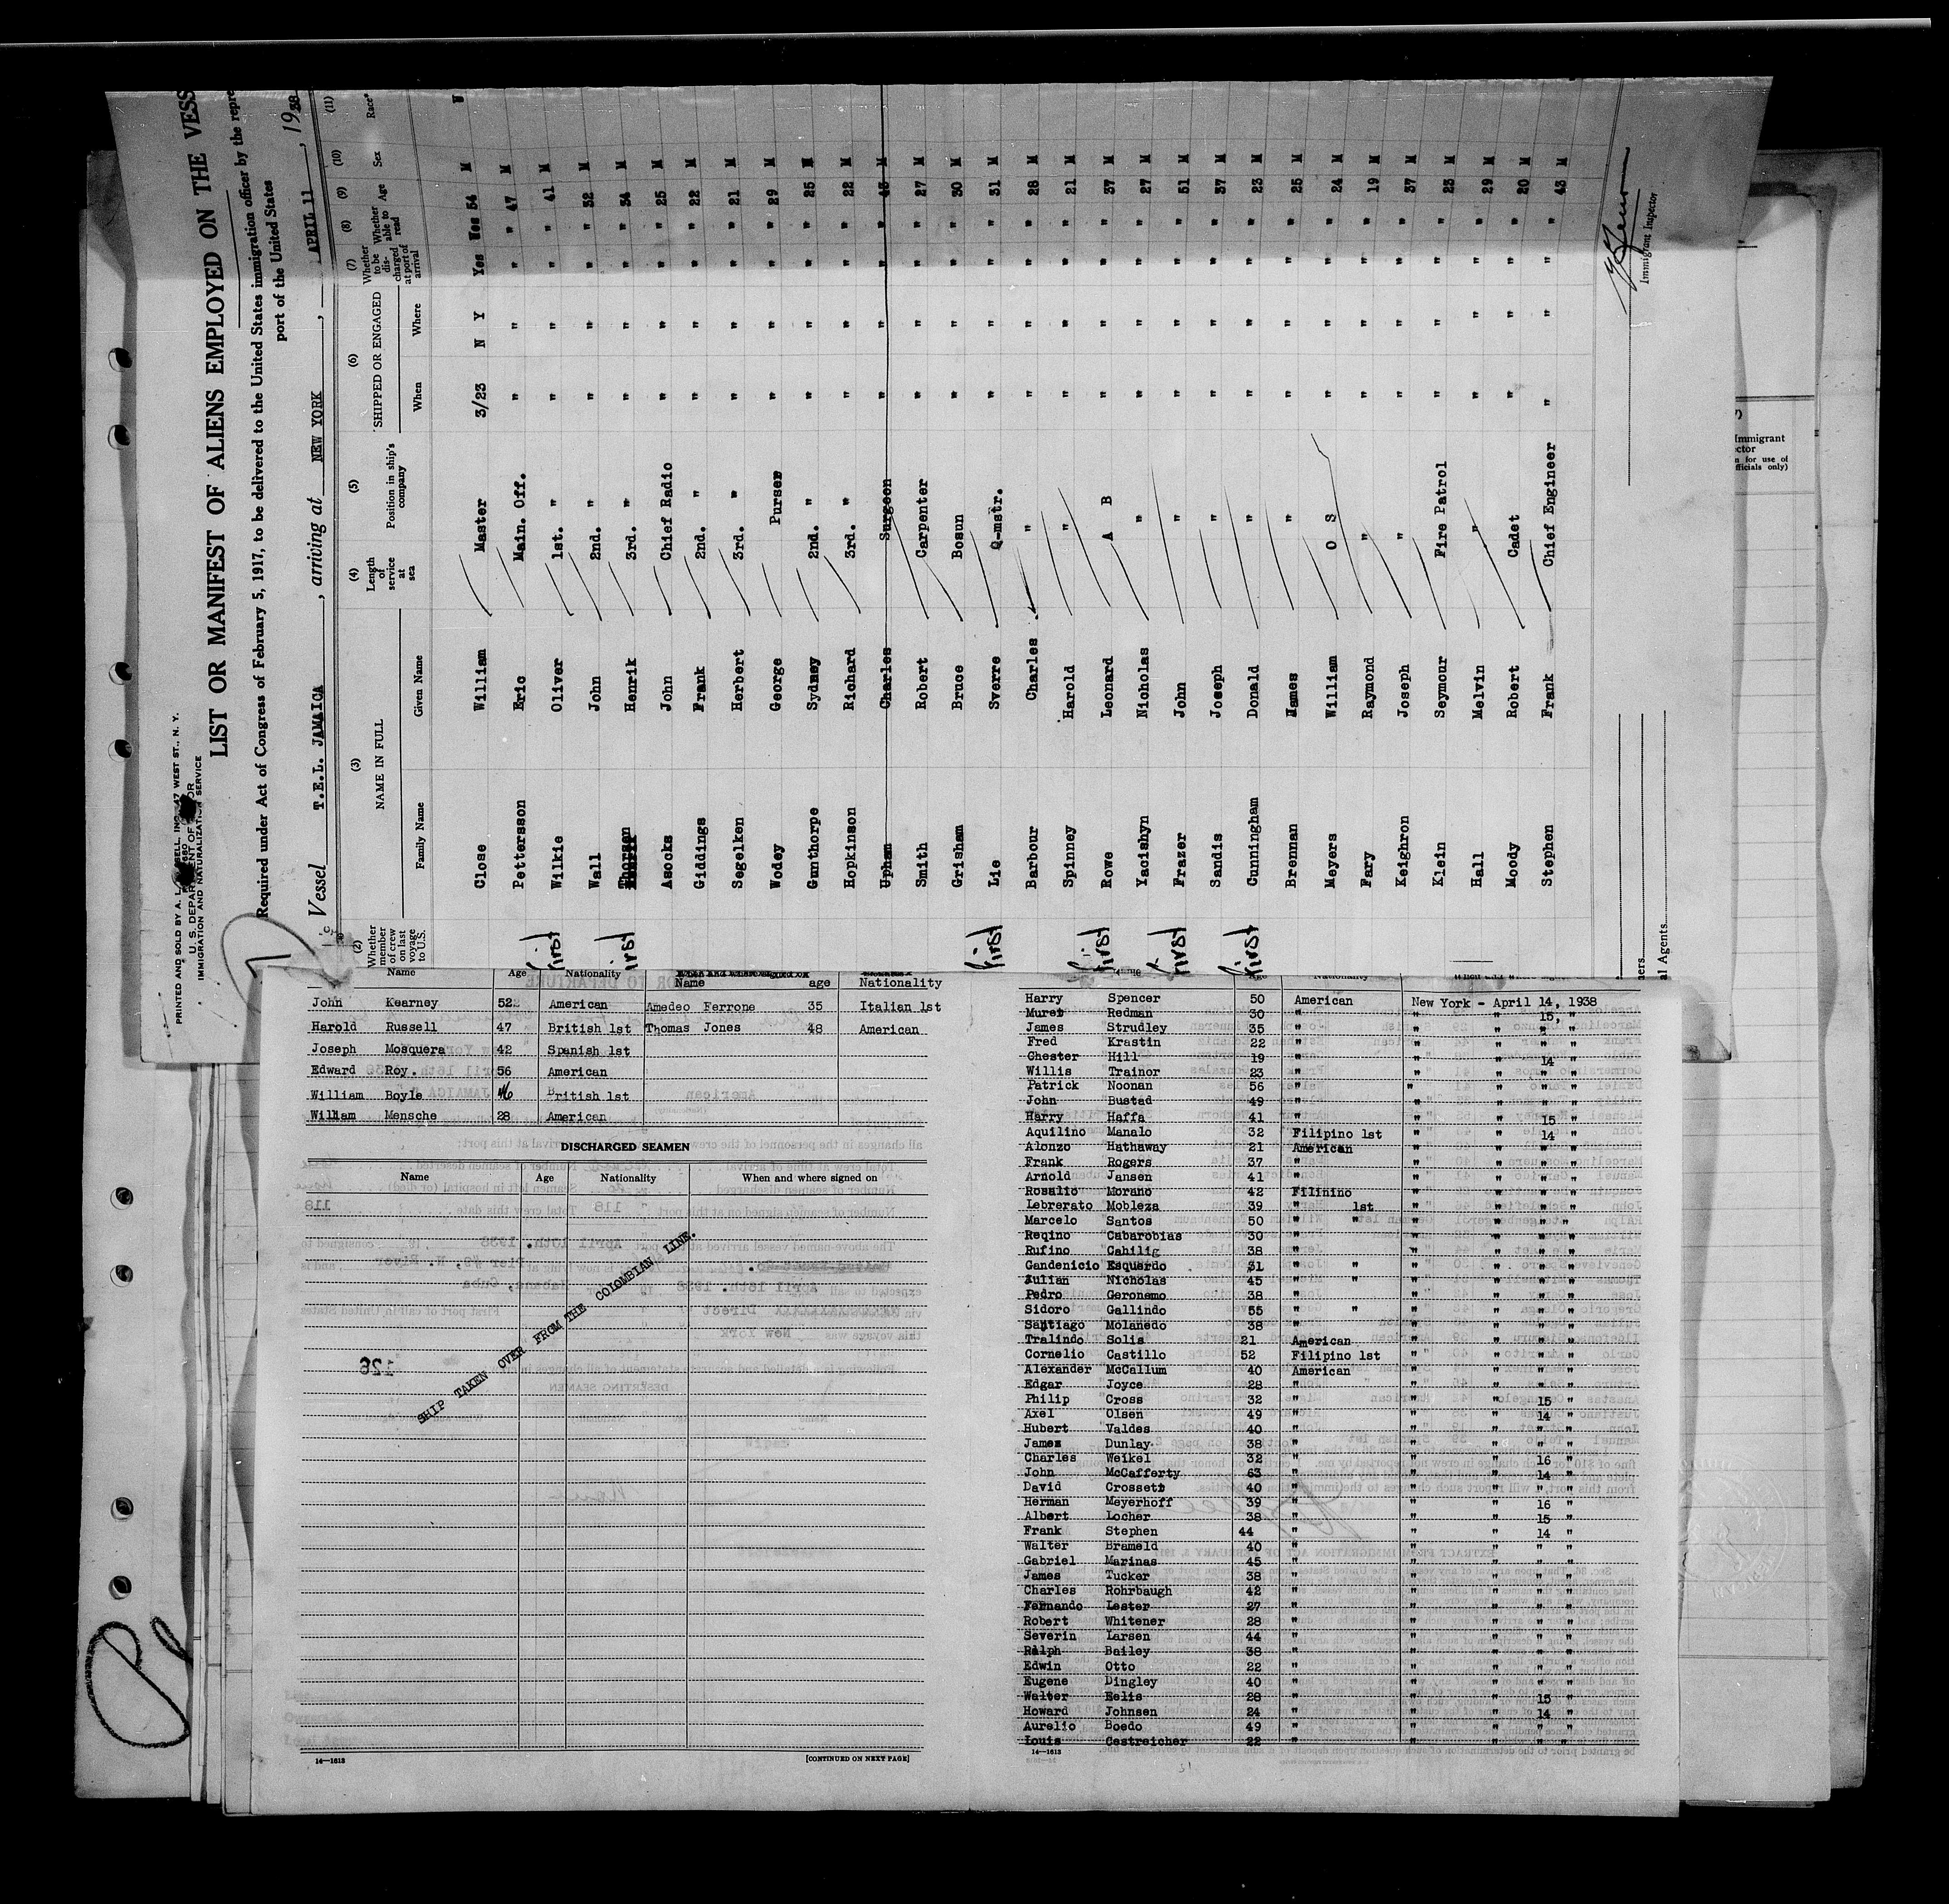 PRINTED AND SOLD BY A. L. 47 WEST ST., N. Y.
U. S. DEPARTMENT OF
IMMIGRATION AND NATURALIZATION SERVICE
LIST OR MANIFEST OF ALIENS EMPLOYED ON THE VESS
Required under Act of Congress of February 5, 1917, to be delivered to the United States immigration officer by the repre
port of the United States
Vessel T.E.L. JAMAICA, arriving at NEW YORK, APRIL 11, 1938
(2) (3) (4) (5) (6) (7) (8) (9) (10) (11)
Whether member of crew on last voyage to U.S. NAME IN FULL Length of service at sea Position in ship's company SHIPPED OR ENGAGED Whether to be discharged at port of arrival Whether able to read Age Sex Race*
Family Name Given Name When Where
Close William Master 3/23 N Y Yes Yes 54 M W
Pettersson Eric Main. Off. " " " " 47 M
first Wilkie Oliver 1st. " " " " " 41 M
Wall John 2nd. " " " " " 32 M
first Thorsen Henrik 3rd. " " " " " 34 M
Asocks John Chief Radio " " " " 25 M
Giddings Frank 2nd. " " " " " 22 M
Segelken Herbert 3rd. " " " " " 21 M
Wodey George Purser " " " " 29 M
Gunthorpe Sydney 2nd. " " " " " 25 M
Hopkinson Richard 3rd. " " " " " 22 M
Upham Charles Surgeon " " " " 43 M
Smith Robert Carpenter " " " " 27 M
Grisham Bruce Bosun " " " " 30 M
first Lie Sverre Q-mstr. " " " " 31 M
Barbour Charles " " " " " 28 M
Spinney Harold " " " " " 21 M
first Rowe Leonard A B " " " " 37 M
Yacishyn Nicholas " " " " " 27 M
first Frazer John " " " " " 51 M
Sandis Joseph " " " " " 37 M
first Cunningham Donald " " " " " 23 M
Brennan James " " " " " 25 M
Meyers William O S " " " " 24 M
Fary Raymond " " " " " 19 M
Keighron Joseph " " " " " 37 M
Klein Seymour Fire Patrol " " " " 23 M
Hall Melvin " " " " " 29 M
Moody Robert Cadet " " " " 20 M
Stephen Frank Chief Engineer " " " " 43 M
Immigrant Inspector
ners.
al Agents.
Immigrant
ctor
n for use of
fficials only)
Name Age Nationality Name age Nationality
John Kearney 52 American Amedeo Ferrone 35 Italian 1st
Harold Russell 47 British 1st Thomas Jones 48 American
Joseph Mosquera 42 Spanish 1st
Edward Roy. 56 American
William Boyle British 1st
William Mensche 28 American
DISCHARGED SEAMEN
Name Age Nationality When and where signed on
SHIP TAKEN OVER FROM THE COLOMBIAN LINE.
14—1613 [CONTINUED ON NEXT PAGE]
Harry Spencer 50 American New York - April 14, 1938
Muret Redman 30 " " " 15, "
James Strudley 35 " " " " "
Fred Krastin 22 " " " " "
Chester Hill 19 " " " 14 "
Willis Trainor 23 " " " " "
Patrick Noonan 56 " " " " "
John Bustad 49 " " " " "
Harry Haffa 41 " " " 15 "
Aquilino Manalo 32 Filipino 1st " " 14 "
Alonzo Hathaway 21 American " " " "
Frank Rogers 37 " " " " "
Arnold Jansen 41 " " " " "
Rosalio Morano 42 Filinino " " " "
Lebrerato Mobleza 39 " 1st " " " "
Marcelo Santos 50 " " " " " "
Reqino Cabarobias 30 " " " " "
Rufino Cahilig 38 " " " " "
Gandenicio Esquerdo 31 " " " " " "
Julian Nicholas 45 " " " " " "
Pedro Geronemo 38 " " " " "
Sidoro Gallindo 55 " " " " " "
Santiago Molanedo 38 " " " " "
Tralindo Solis 21 American " " " "
Cornelio Castillo 52 Filipino 1st " " " "
Alexander McCallum 40 American " " " "
Edgar Joyce 28 " " " " "
Philip Cross 32 " " " 15 "
Axel Olsen 49 " " " 14 "
Hubert Valdes 40 " " " " "
James Dunlay 38 " " " " "
Charles Weikel 32 " " " 16 "
John McCafferty 63 " " " 14 "
David Crossett 40 " " " " "
Herman Meyerhoff 39 " " " 16 "
Albert Locher 38 " " " 15 "
Frank Stephen 44 " " " 14 "
Walter Brameld 40 " " " " "
Gabriel Marinas 45 " " " " "
James Tucker 38 " " " " "
Charles Rohrbaugh 42 " " " " "
Fernando Lester 27 " " " " "
Robert Whitener 28 " " " " "
Severin Larsen 44 " " " " "
Ralph Bailey 38 " " " " "
Edwin Otto 22 " " " " "
Eugene Dingley 40 " " " " "
Walter Eelis 28 " " " 15 "
Howard Johnsen 24 " " " 14 "
Aurelio Boedo 49 " " " " "
Louis Oestreicher 22 " " " " "
14—1613